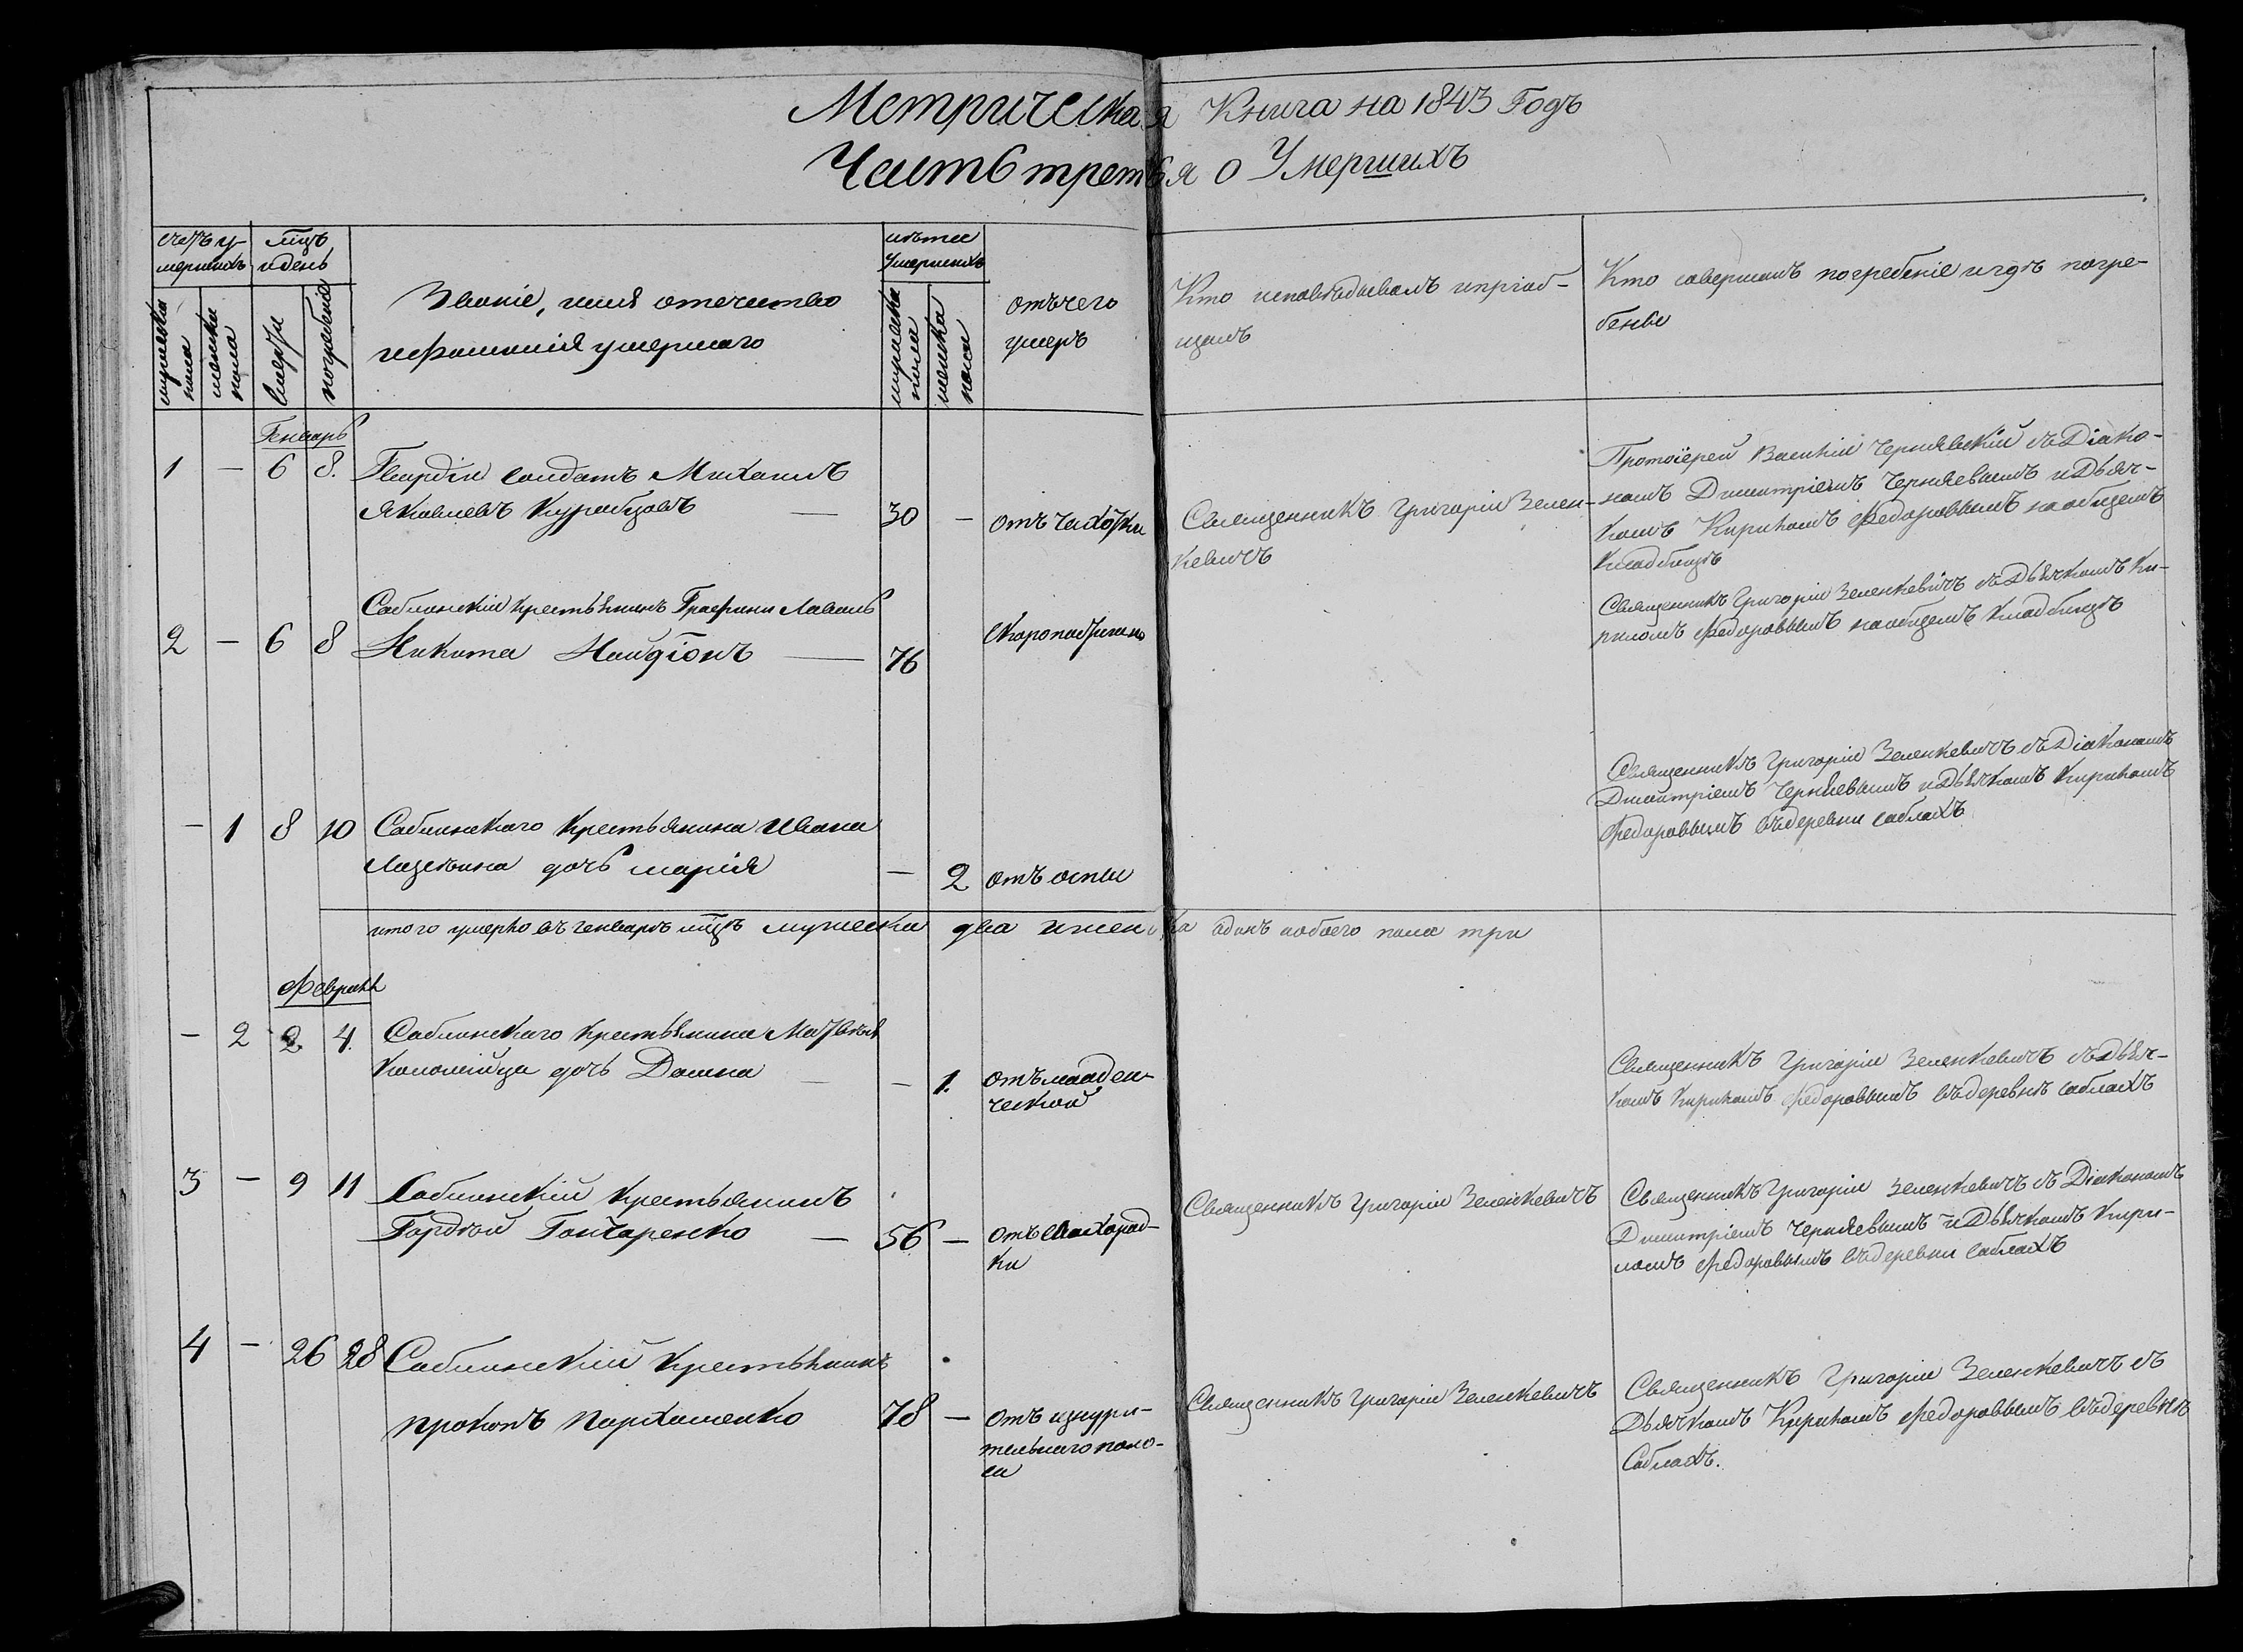 Метрическая Книга на 1843 Годъ
Часть третья о Умершихъ
счетъ у-
мершихъ
мцъ
и день
мужеска
пола
женска
пола
смерти
погребенія
Званіе, имя отечество
и фамилія умершаго
лѣта
Умершихъ
мужеска
пола
женска
пола
отъ чего
умеръ
Кто исповѣдывалъ и пріоб-
щалъ
Кто совершалъ погребеніе и гдѣ погре-
бены
Генварь
1 — 6 8. Гвардіи солдатъ Михаилъ
Яковлевъ — 30 — отъ чахотки
Священникъ Григорій Зелен-
кевичъ
Протоіерей Василій Чернявскій съ Діако-
номъ Димитріемъ Черняевымъ и Дьяч-
комъ Кириломъ Федоровымъ на общемъ
Кладбищѣ
2 — 6 8 Саблинскій крестьянинъ Графини Лаваль
Никита Найдіонъ — 76
Скоропостижно
Священникъ Григорій Зеленкевичъ съ Дьячкомъ Ки-
риломъ Федоровымъ на общемъ Кладбищѣ
— 1 8 10 Саблинскаго Крестьянина Ивана
дочь Марія — 2 отъ оспы
Священникъ Григорій Зеленкевичъ съ Діакономъ
Димитріемъ Черняевымъ и Дьячкомъ Кириломъ
Федоровымъ въ деревни саблахъ
итого умерло въ генварѣ мцѣ мужеска два и женска одинъ а обоего пола три
Февраль
— 2 2 4. Саблинскаго Крестьянина Матвѣя
Коломійца дочь Домна — — 1. отъ младен-
ческой
Священникъ Григорій Зеленкевичъ съ Дьяч-
комъ Кириломъ Федоровымъ въ деревнѣ саблахъ
3 — 9 11 Саблинскій Крестьянинъ
Гордѣй Гончаренко — 56 — отъ лихорад-
ки
Священникъ Григорій Зеленкевичъ
Священникъ Григорій Зеленкевичъ съ Діакономъ
Димитріемъ Черняевымъ и Дьячкомъ Кири-
ломъ Федоровымъ въ деревни саблахъ
4 — 26 28 Саблинскій Крестьянинъ
Прокопъ Пархоменко 78 — отъ изнури-
тельнаго поно-
са
Священникъ Григорій Зеленкевичъ
Священникъ Григорій Зеленкевичъ съ
Дьячкомъ Кириломъ Федоровымъ въ деревнѣ
Саблахъ.